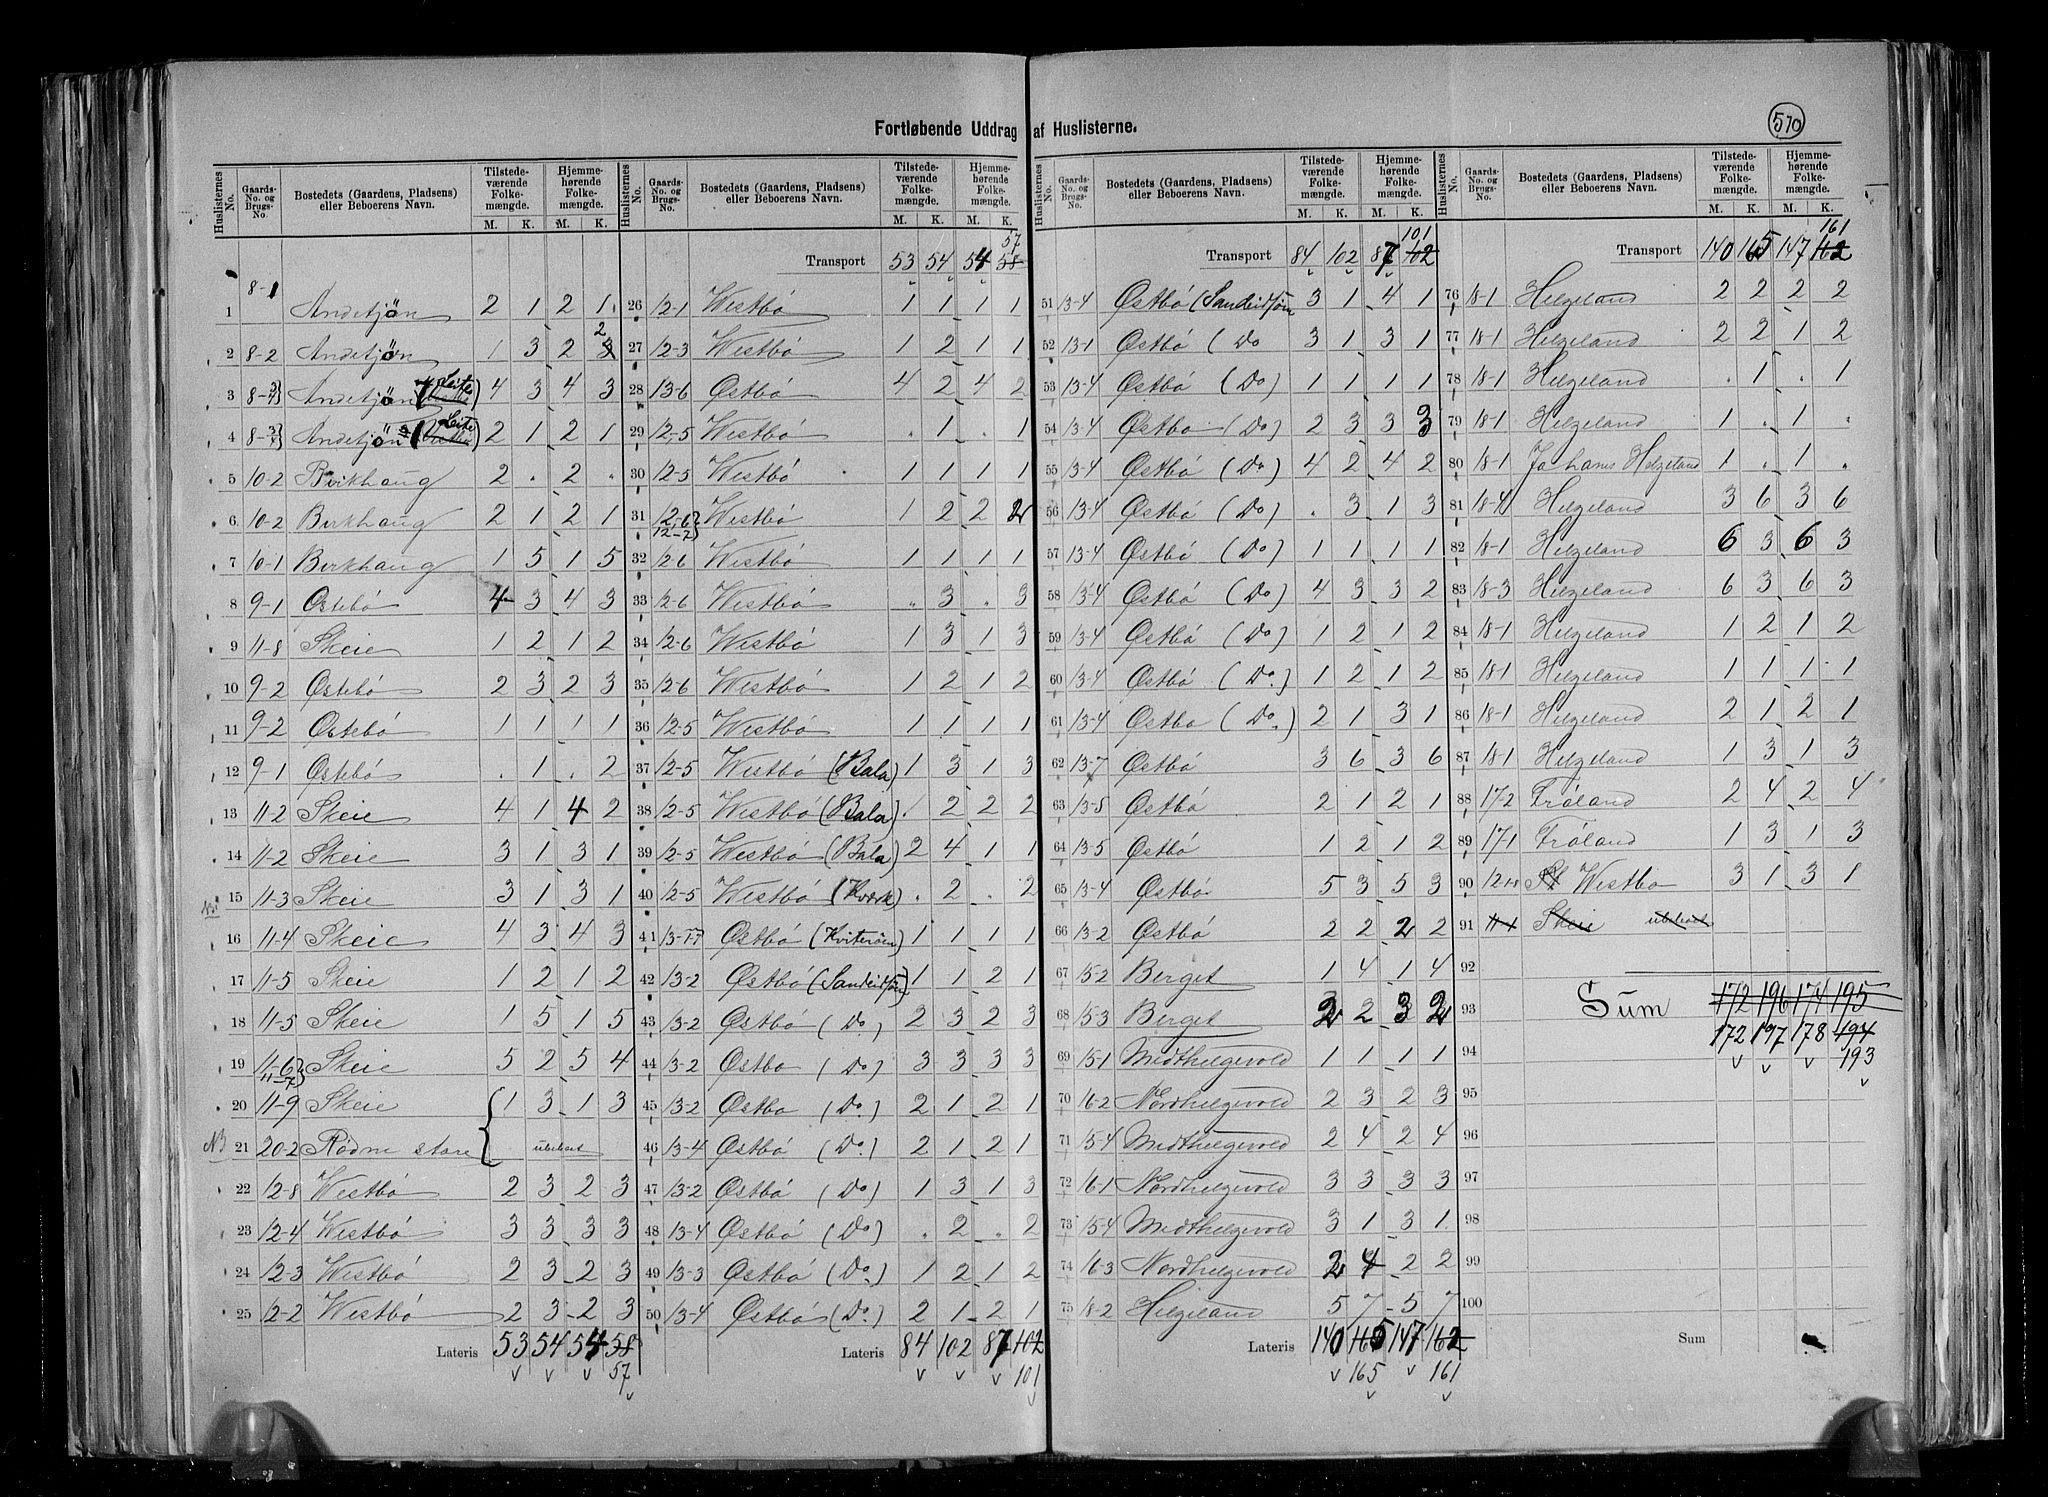 Fortløbende Uddrag af Huslisterne.
570
Huslisternes No. | Gaards-No. og Brugs-No. | Bostedets (Gaardens, Pladsens) eller Beboerens Navn. | Tilstedeværende Folkemængde. M. K. | Hjemmehørende Folkemængde. M. K.
1 8-1 Andetjön 2 1 2 1
2 8-2 Andetjön 1 3 2 3 2
3 8-3/4 Andetjön (Leite) 4 3 4 3
4 Andetjön (Leite) 2 1 2 1
5 10-2 Birkhaug 2 . 2 .
6 10-2 Birkhaug 2 1 2 1
7 10-1 Birkhaug 1 5 1 5
8 9-1 Östebö 4 3 4 3
9 11-8 Skeie 1 2 1 2
10 9-2 Östebö 2 3 2 3
11 9-2 Östebö 1 1 1 1
12 9-1 Östebö . 1 . 2
13 11-2 Skeie 4 1 4 2
14 11-2 Skeie 3 1 3 1
15 11-3 Skeie 3 1 3 1
16 11-4 Skeie 4 3 4 3
17 11-5 Skeie 1 2 1 2
18 11-5 Skeie 1 5 1 5
19 11-6 11-7 Skeie 5 2 5 4
20 11-9 Skeie 1 3 1 3
NB 21 20-2 Rødne store ubeboet
22 12-8 Westbö 2 3 2 3
23 12-4 Westbö 3 3 3 3
24 12-3 Westbö 2 3 2 3
25 12-2 Westbö 2 3 2 3
Lateris 53 54 54 58
57
Huslisternes No. | Gaards-No. og Brugs-No. | Bostedets (Gaardens, Pladsens) eller Beboerens Navn. | Tilstedeværende Folkemængde. M. K. | Hjemmehørende Folkemængde. M. K.
57
Transport 53 54 54 58
26 12-1 Westbö 1 1 1 1
27 12-3 Westbö 1 2 1 1
28 13-6 Østbö 4 2 4 2
29 12-5 Westbö . 1 . 1
30 12-5 Westbö 1 1 1 1
31 12-6 12-2 Westbö 1 2 2 2
32 12-6 Westbö 1 1 1 1
33 12-6 Westbö . 3 . 3
34 12-6 Westbö 1 3 1 3
35 12-6 Westbö 1 2 1 2
36 12-5 Westbö 1 1 1 1
37 12-5 Westbö (Bala) 1 3 1 3
38 12-5 Westbö (Bala) . 2 2 2
39 12-5 Westbö (Bala) 2 4 1 1
40 12-5 Westbö (Kværk) . 2 . 2
41 Østbö (Kviteröen) 1 1 1 1
42 13-2 Østbö (Sandeidsjøen) 1 1 2 1
43 13-2 Østbö (Do) 2 3 2 3
44 13-2 Østbo (Do) 3 3 3 3
45 13-2 Østbo (Do.) 2 1 2 1
46 13-4 Østbö (Do.) 2 1 2 1
47 13-2 Østbö (Do) 1 3 1 3
48 13-4 Østbö (Do) . 2 . 2
49 13-3 Østbö (Do.) 1 2 1 2
50 13-4 Østbö (Do.) 2 1 2 1
Lateris 84 102 87 102
101
Huslisternes No. | Gaards-No. og Brugs-No. | Bostedets (Gaardens, Pladsens) eller Beboerens Navn. | Tilstedeværende Folkemængde. M. K. | Hjemmehørende Folkemængde. M. K.
101
Transport 84 102 87 102
51 13-4 Østbö (Sandeidsjøen 3 1 4 1
52 13-1 Østbö (Do 3 1 3 1
53 13-4 Østbö (Do) 1 1 1 1
54 13-4 Østbo (Do) 2 3 3 3
55 13-4 Østbö (Do) 4 2 4 2
56 13-4 Østbö (Do) . 3 1 3
57 13-4 Østbö (Do) 1 1 1 1
58 13-4 Østbö (Do) 4 3 3 2
59 13-4 Østbö (Do) 1 2 1 2
60 13-4 Østbö (Do.) 1 2 1 2
61 13-4 Østbo (Do.) 2 1 3 1
62 13-7 Østbö 3 6 3 6
63 13-5 Østbö 2 1 2 1
64 13-5 Østbö 1 2 1 2
65 13-4 Østbö 5 3 5 3
66 13-2 Østbö 2 2 2 2
67 15-2 Berget 1 4 1 4
68 15-3 Berget 2 2 3 2
69 15-1 Midthelgevold 1 1 1 1
70 16-2 Nordhelgevold 2 3 2 3
71 15-4 Midthelgevold 2 4 2 4
72 16-1 Nordhelgevold 3 3 3 3
73 15-4 Midthelgevold 3 1 3 1
74 16-3 Nordhelgevold 2 4 2 2
75 18-2 Helgeland 5 7 5 7
Lateris 140 165 147 162
165 161
Huslisternes No. | Gaards-No. og Brugs-No. | Bostedets (Gaardens, Pladsens) eller Beboerens Navn. | Tilstedeværende Folkemængde. M. K. | Hjemmehørende Folkemængde. M. K.
161
Transport 140 165 147 162
76 18-1 Helgeland 2 2 2 2
77 18-1 Helgeland 2 2 1 2
78 18-1 Helgeland . 1 . 1
79 18-1 Helgeland 1 . 1 .
80 18-1 Johannes Helgeland 1 . 1 .
81 18-4 Helgeland 3 6 3 6
82 18-1 Helgeland 6 3 6 3
83 18-3 Helgeland 6 3 6 3
84 18-1 Helgeland 1 2 1 2
85 18-1 Helgeland 1 1 1 1
86 18-1 Helgeland 2 1 2 1
87 18-1 Helgeland 1 3 1 3
88 17-2 Fröland 2 4 2 4
89 17-1 Fröland 1 3 1 3
90 Westbo 3 1 3 1
91 11-1 Skeie ubeboet
92
93 Sum 172 196 174 195
172 197 178 194
94 193
95
96
97
98
99
100
Sum